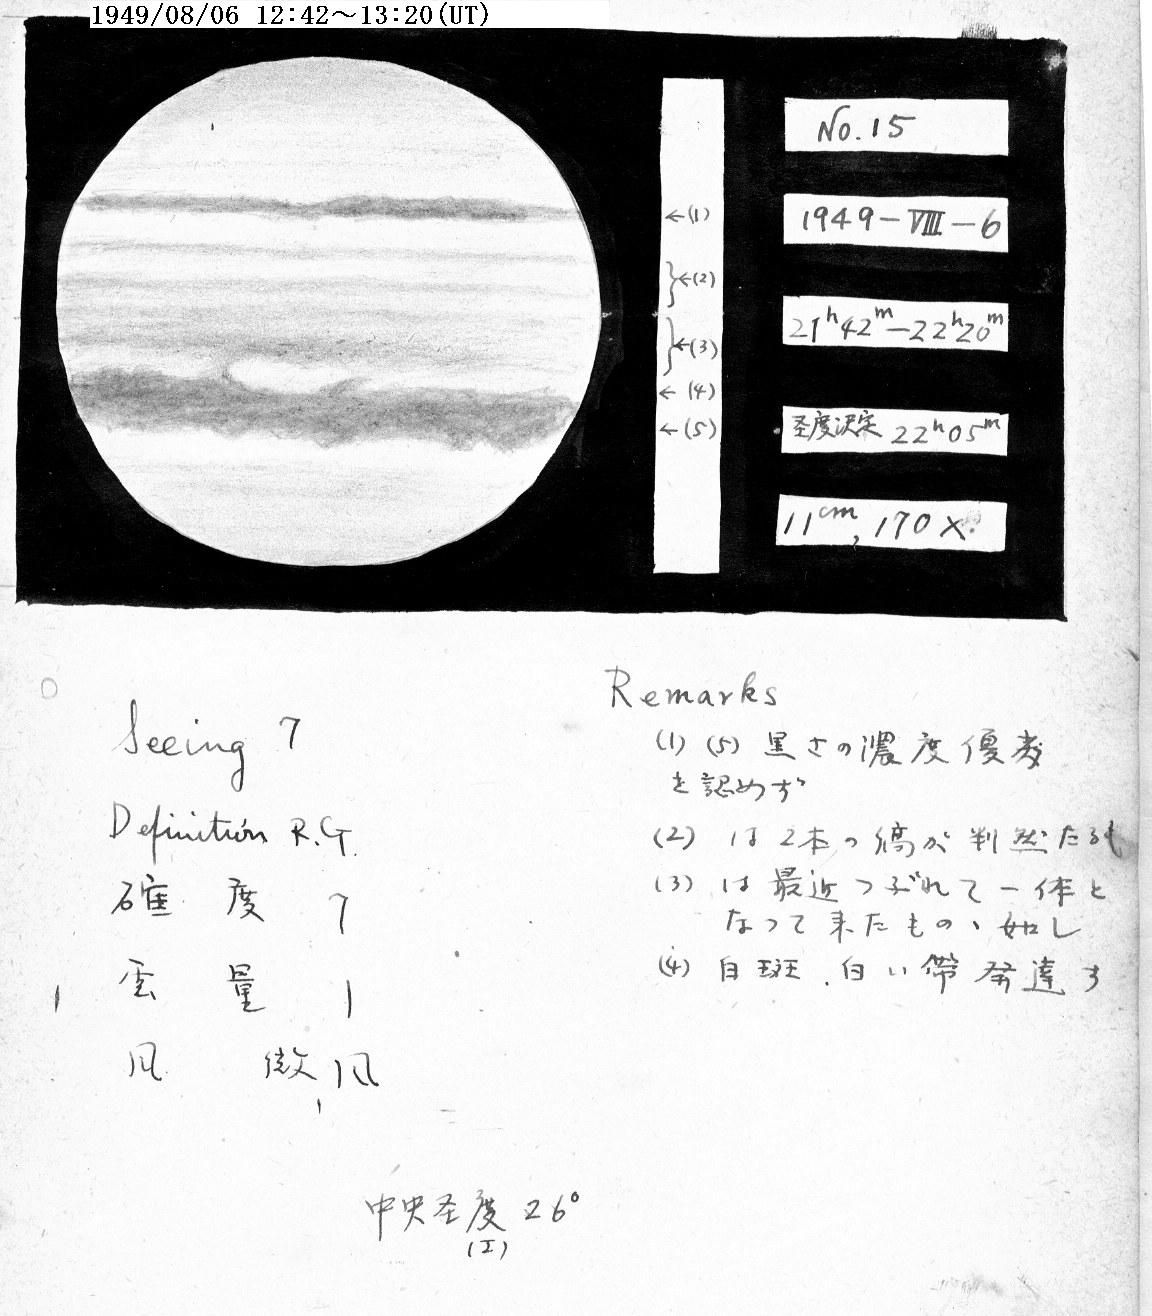 1949/08/06 12:42～13:20(UT)
No. 15
1949-VIII-6
21h42m-22h20m
圣度決定 22h05m
11cm, 170×
←(1)
←(2)
←(3)
←(4)
←(5)
Seeing 7
Definition R.G.
確度 7
雲量 1
風 微風
中央圣度 26°
(I)
Remarks
(1) (5) 黒さの濃度優劣
を認めず
(2) は2本の縞が判然たるも
(3) は最近つぶれて一体と
なって来たもの、如し
(4) 白斑、白い帯発達す